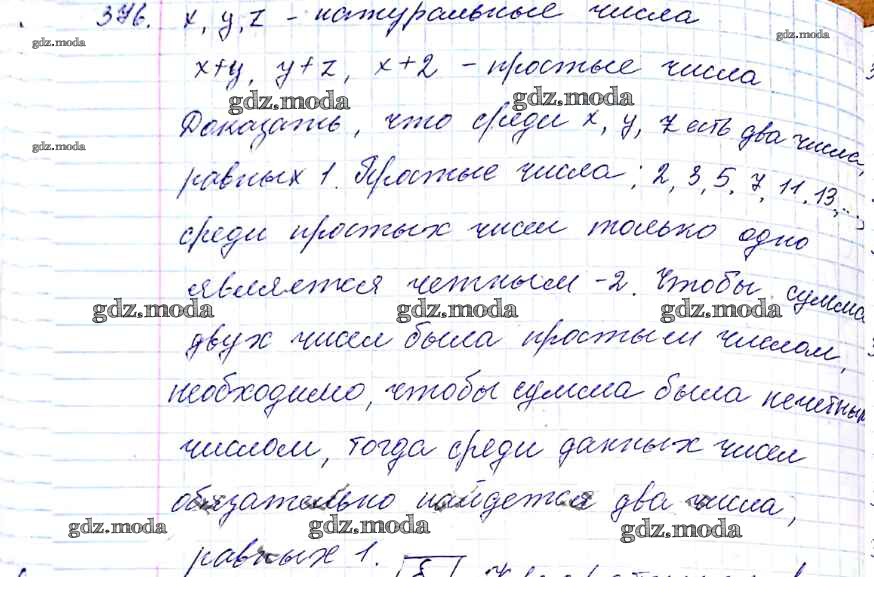 376. x, y, z - натуральные числа
gdz.moda gdz.moda
x+y, y+z, x+2 - простые числа
gdz.moda gdz.moda
Доказать, что среди x, y, z есть два числа,
gdz.moda
равных 1. Простые числа; 2, 3, 5, 7, 11, 13, ...,
среди простых чисел только одно
является четным - 2. Чтобы сумма
gdz.moda gdz.moda gdz.moda
двух чисел была простым числом,
необходимо, чтобы сумма была нечетным
числом, тогда среди данных чисел
обязательно найдется два числа,
gdz.moda gdz.moda gdz.moda
равных 1.